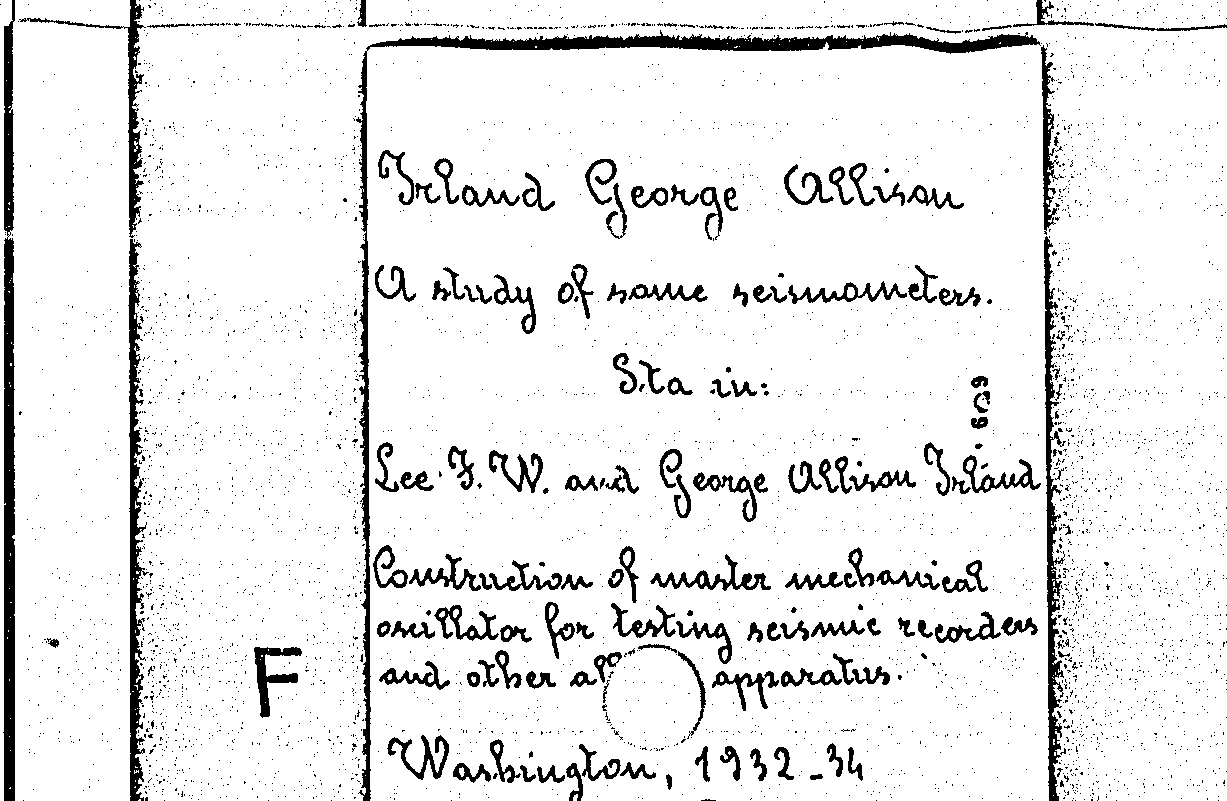 Irland George Allison
A study of some seismometers.
Sta in:
609
Lee F. W. and George Allison Irland
Construction of master mechanical
oscillator for testing seismic recorders
and other apparatus.
F
Washington, 1932-34